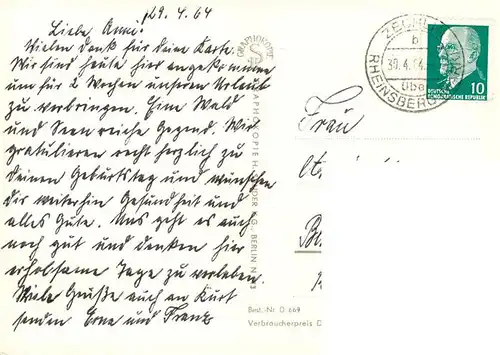 29.4.64
Liebe Anni!
Vielen Dank für Deine Karte.
Wir sind heute hier angekommen
um für 2 Wochen unseren Urlaub
zu verbringen. Eine Wald
und Seenreiche Gegend. Wir
gratulieren recht herzlich zu
Deinen Geburtstag und wünschen
Dir weiterhin Gesundheit und
alles Gute. Uns geht es auch
noch gut und denken hier
erholsame Tage zu verleben.
Viele Grüße auch an Kurt
senden Erne und Franz
GRAPHOKOPIE
BERLIN N
Frau
RHEINSBERG
DEUTSCHE
DEMOKRATISCHE REPUBLIK
10
Best.-Nr. D 669
Verbraucherpreis D